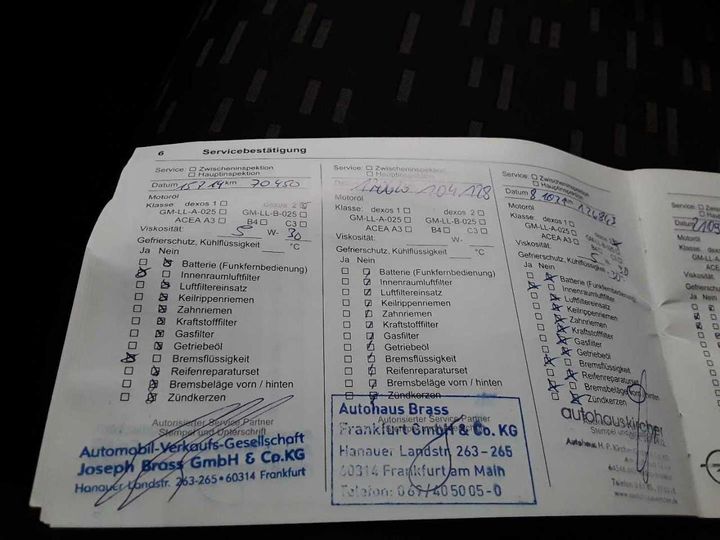 6 Servicebestätigung
Service: Zwischeninspektion
Hauptinspektion
Datum 15.7.14 km 70.450
Motoröl
Klasse: dexos 1 dexos 2
GM-LL-A-025 GM-LL-B-025
ACEA A3 B4 C3
Viskosität: 5 W- 30
Gefrierschutz, Kühlflüssigkeit °C
Ja Nein
Batterie (Funkfernbedienung)
Innenraumluftfilter
Luftfiltereinsatz
Keilrippenriemen
Zahnriemen
Kraftstofffilter
Gasfilter
Getriebeöl
Bremsflüssigkeit
Reifenreparaturset
Bremsbeläge vorn / hinten
Zündkerzen
Autorisierter Service Partner
Stempel und Unterschrift
Automobil-Verkaufs-Gesellschaft
Joseph Brass GmbH & Co.KG
Hanauer Landstr. 263-265 • 60314 Frankfurt
Service: Zwischeninspektion
Hauptinspektion
104.128
Motoröl
Klasse: dexos 1 dexos 2
GM-LL-A-025 GM-LL-B-025
ACEA A3 B4 C3
Viskosität: W-
Gefrierschutz, Kühlflüssigkeit °C
Ja Nein
Batterie (Funkfernbedienung)
Innenraumluftfilter
Luftfiltereinsatz
Keilrippenriemen
Zahnriemen
Kraftstofffilter
Gasfilter
Getriebeöl
Bremsflüssigkeit
Reifenreparaturset
Bremsbeläge vorn / hinten
Zündkerzen
Autorisierter Service Partner
Autohaus Brass
Frankfurt GmbH & Co. KG
Hanauer Landstr. 263-265
60314 Frankfurt am Main
Telefon: 069/405005-0
Service: Zwischeninspektion
Hauptinspektion
Datum
Motoröl
Klasse: dexos 1
GM-LL-A-025
ACEA A3
Viskosität:
Gefrierschutz, Kühlflüssigkeit
Ja Nein
Batterie (Funkfernbedienung)
Innenraumluftfilter
Luftfiltereinsatz
Keilrippenriemen
Zahnriemen
Kraftstofffilter
Gasfilter
Getriebeöl
Bremsflüssigkeit
Reifenreparaturset
Bremsbeläge vorn / hinten
Zündkerzen
autohauskircher
Service:
Datum
Motoröl
Klasse:
Ja Nein